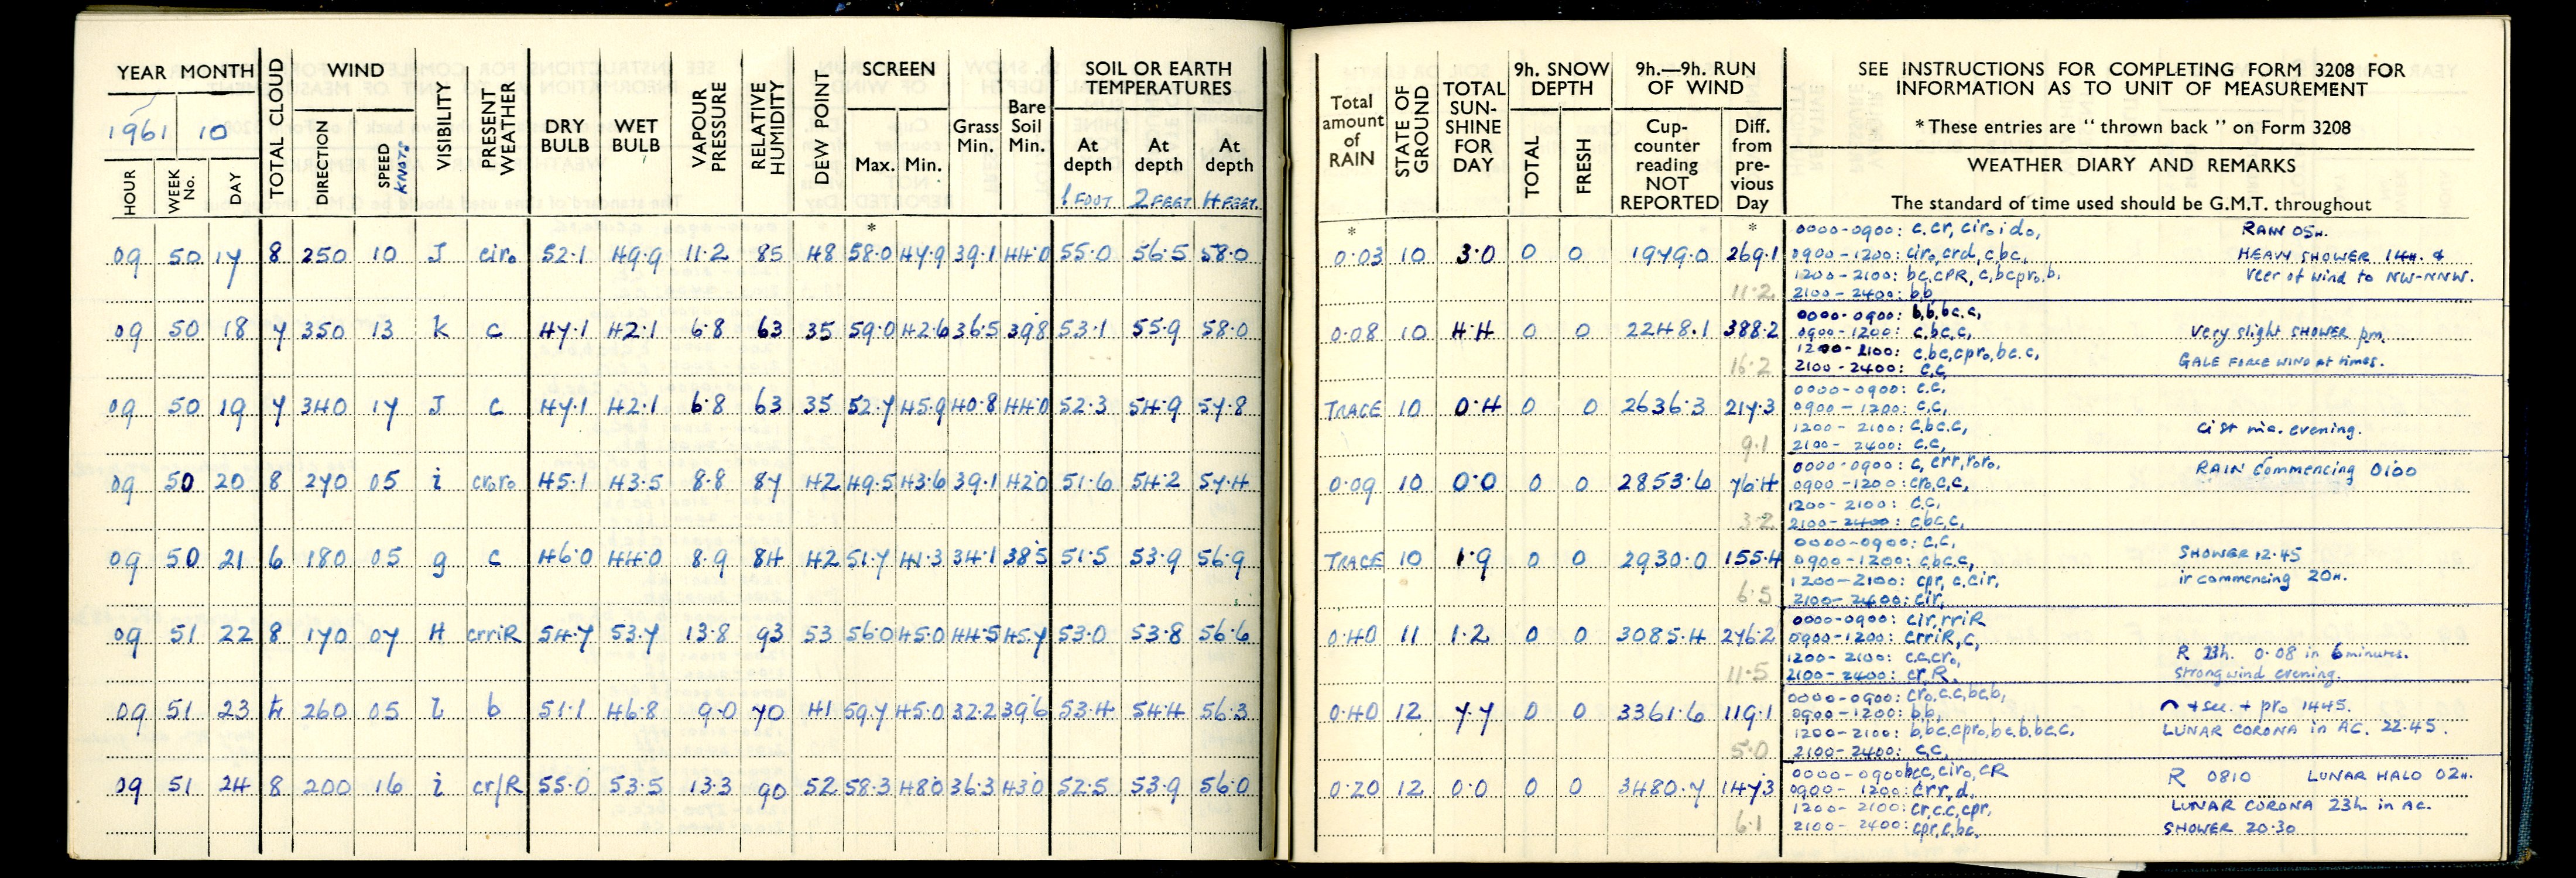 YEAR MONTH
1961 10
HOUR
WEEK No.
DAY
TOTAL CLOUD
WIND
DIRECTION
SPEED KNOTS
VISIBILITY
PRESENT WEATHER
DRY BULB
WET BULB
VAPOUR PRESSURE
RELATIVE HUMIDITY
DEW POINT
SCREEN
Max. Min.
Grass Min.
Bare Soil Min.
SOIL OR EARTH TEMPERATURES
At depth At depth At depth
1 FOOT 2 FEET 4 FEET
*
09 50 17 8 250 10 J ciro 52.1 49.9 11.2 85 48 58.0 47.9 39.1 44.0 55.0 56.5 58.0
09 50 18 7 350 13 k c 47.1 42.1 6.8 63 35 59.0 42.6 36.5 39.8 53.1 55.9 58.0
09 50 19 7 340 17 J c 47.1 42.1 6.8 63 35 52.7 45.9 40.8 44.0 52.3 54.9 57.8
09 50 20 8 270 05 i croro 45.1 43.5 8.8 87 42 49.5 43.6 39.1 42.0 51.6 54.2 57.4
09 50 21 6 180 05 g c 46.0 44.0 8.9 84 42 51.7 41.3 34.1 38.5 51.5 53.9 56.9
09 51 22 8 170 07 H crriR 54.7 53.7 13.8 93 53 56.0 45.0 44.5 45.7 53.0 53.8 56.6
09 51 23 260 05 b 51.1 46.8 9.0 70 41 59.7 45.0 32.2 39.6 53.4 54.4 56.3
09 51 24 8 200 16 i cr/R 55.0 53.5 13.3 90 52 58.3 48.0 36.3 43.0 52.5 53.9 56.0
Total amount of RAIN
STATE OF GROUND
TOTAL SUN-SHINE FOR DAY
9h. SNOW DEPTH
TOTAL
FRESH
9h.—9h. RUN OF WIND
Cup-counter reading NOT REPORTED
Diff. from pre-vious Day
SEE INSTRUCTIONS FOR COMPLETING FORM 3208 FOR
INFORMATION AS TO UNIT OF MEASUREMENT
* These entries are " thrown back " on Form 3208
WEATHER DIARY AND REMARKS
The standard of time used should be G.M.T. throughout
* *
0.03 10 3.0 0 0 1979.0 269.1
11.2
0000-0900: c, cr, ciro, ido, RAIN 05H.
0900-1200: ciro, crd, c, bc, HEAVY SHOWER 14H. &
1200-2100: bc, cPR, c, bcpro, b, Veer of wind to NW-NNW.
2100-2400: b,b
0.08 10 4.4 0 0 2248.1 388.2
16.2
0000-0900: b,b,bc,c,
0900-1200: c,bc,c, Very slight SHOWER pm.
1200-2100: c,bc,cpro,bc,c, GALE FORCE WIND at times.
2100-2400: c,c,
TRACE 10 0.4 0 0 2636.3 217.3
9.1
0000-0900: c,c,
0900-1200: c,c,
1200-2100: c,bc,c, evening.
2100-2400: c,c,
0.09 10 0.0 0 0 2853.6 76.4
3.2
0000-0900: c, crr,roro, RAIN commencing 0100
0900-1200: cro,c,c,
1200-2100: c,c,
2100-2400: c,bc,c,
TRACE 10 1.9 0 0 2930.0 155.4
6.5
0000-0900: c,c,
0900-1200: c,bc,c, SHOWER 12.45
1200-2100: cpr, c, cir, ir commencing 20H.
2100-2400: cir,
0.40 11 1.2 0 0 3085.4 276.2
11.5
0000-0900: cir,rriR
0900-1200: crriR,c,
1200-2100: c,c,cro, R 23h. 0.08 in 6 minutes.
2100-2400: cr,R. Strong wind evening.
0.40 12 7.7 0 0 3361.6 119.1
5.0
0000-0900: cro,c,c,bc,b,
0900-1200: b,b, pro 1445.
1200-2100: b,bc,cpro,bc,b,bc,c, LUNAR CORONA in AC. 22.45.
2100-2400: c,c,
0.20 12 0.0 0 0 3480.7 147.3
6.1
0000-0900 bc,c, ciro, CR R 0810 LUNAR HALO 02H.
0900-1200: crr,d,
1200-2100: cr,c,c,cpr, LUNAR CORONA 23h in AC.
2100-2400: cpr,c,bc, SHOWER 20.30